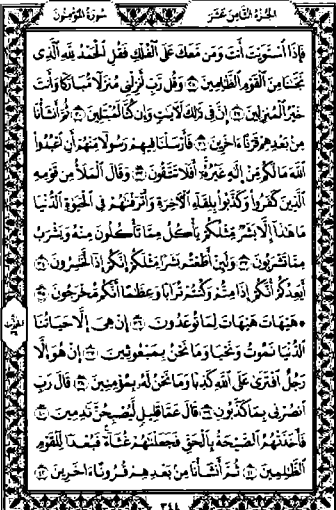 الجُزءُ الثَّامِنَ عَشَرَ سُورَةُ المُؤْمِنُون
فَإِذَا ٱسْتَوَيْتَ أَنتَ وَمَن مَّعَكَ عَلَى ٱلْفُلْكِ فَقُلِ ٱلْحَمْدُ لِلَّهِ ٱلَّذِى
نَجَّىٰنَا مِنَ ٱلْقَوْمِ ٱلظَّٰلِمِينَ ٢٨ وَقُل رَّبِّ أَنزِلْنِى مُنزَلًا مُّبَارَكًا وَأَنتَ
خَيْرُ ٱلْمُنزِلِينَ ٢٩ إِنَّ فِى ذَٰلِكَ لَءَايَٰتٍ وَإِن كُنَّا لَمُبْتَلِينَ ٣٠ ثُمَّ أَنشَأْنَا
مِنۢ بَعْدِهِمْ قَرْنًا ءَاخَرِينَ ٣١ فَأَرْسَلْنَا فِيهِمْ رَسُولًا مِّنْهُمْ أَنِ ٱعْبُدُوا۟
ٱللَّهَ مَا لَكُم مِّنْ إِلَٰهٍ غَيْرُهُۥٓ أَفَلَا تَتَّقُونَ ٣٢ وَقَالَ ٱلْمَلَأُ مِن قَوْمِهِ
ٱلَّذِينَ كَفَرُوا۟ وَكَذَّبُوا۟ بِلِقَآءِ ٱلْءَاخِرَةِ وَأَتْرَفْنَٰهُمْ فِى ٱلْحَيَوٰةِ ٱلدُّنْيَا
مَا هَٰذَآ إِلَّا بَشَرٌ مِّثْلُكُمْ يَأْكُلُ مِمَّا تَأْكُلُونَ مِنْهُ وَيَشْرَبُ
مِمَّا تَشْرَبُونَ ٣٣ وَلَئِنْ أَطَعْتُم بَشَرًا مِّثْلَكُمْ إِنَّكُمْ إِذًا لَّخَٰسِرُونَ ٣٤
أَيَعِدُكُمْ أَنَّكُمْ إِذَا مِتُّمْ وَكُنتُمْ تُرَابًا وَعِظَٰمًا أَنَّكُم مُّخْرَجُونَ ٣٥
هَيْهَاتَ هَيْهَاتَ لِمَا تُوعَدُونَ ٣٦ إِنْ هِىَ إِلَّا حَيَاتُنَا
ٱلدُّنْيَا نَمُوتُ وَنَحْيَا وَمَا نَحْنُ بِمَبْعُوثِينَ ٣٧ إِنْ هُوَ إِلَّا
رَجُلٌ ٱفْتَرَىٰ عَلَى ٱللَّهِ كَذِبًا وَمَا نَحْنُ لَهُۥ بِمُؤْمِنِينَ ٣٨ قَالَ رَبِّ
ٱنصُرْنِى بِمَا كَذَّبُونِ ٣٩ قَالَ عَمَّا قَلِيلٍ لَّيُصْبِحُنَّ نَٰدِمِينَ ٤٠
فَأَخَذَتْهُمُ ٱلصَّيْحَةُ بِٱلْحَقِّ فَجَعَلْنَٰهُمْ غُثَآءً فَبُعْدًا لِّلْقَوْمِ
ٱلظَّٰلِمِينَ ٤١ ثُمَّ أَنشَأْنَا مِنۢ بَعْدِهِمْ قُرُونًا ءَاخَرِينَ ٤٢
٣٤٤